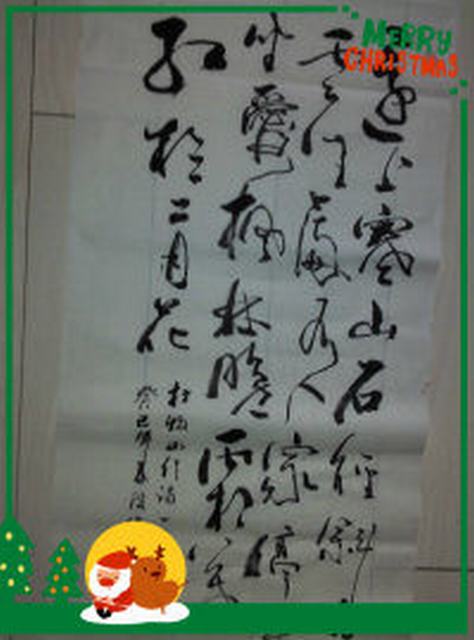 MERRY
CHRISTMAS
遠上寒山石徑斜
云生處有人家停
坐愛楓林晚霜葉
紅於二月花
杜牧山行詩一
癸巳年春